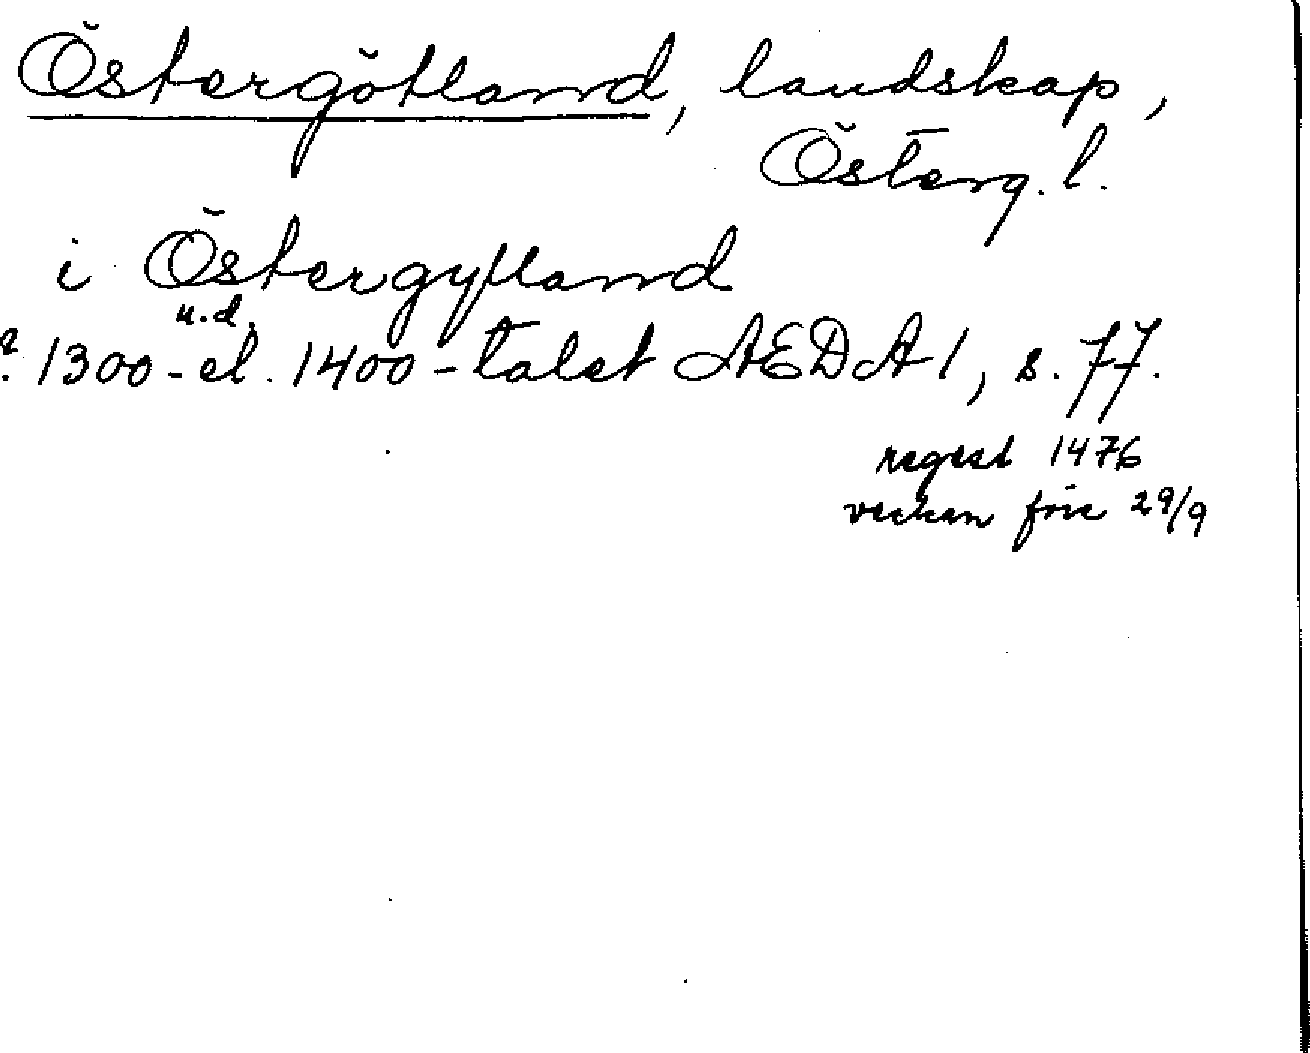 Östergötland, landskap,
Österg. l.
i Östergytland
u.d.
? 1300- el. 1400-talet AEDA 1, s. 77.
regest 1476
veckan före 29/9